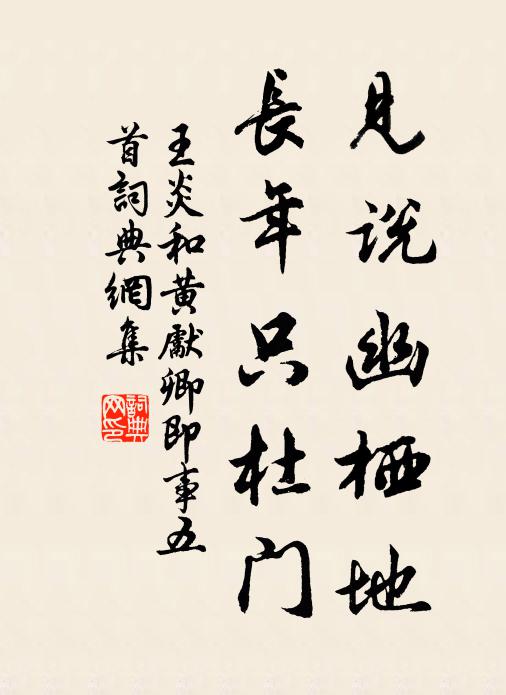 見説幽栖地
長年只杜门
王炎和黄獻卿即事五
首詞典網集
詞典
网印